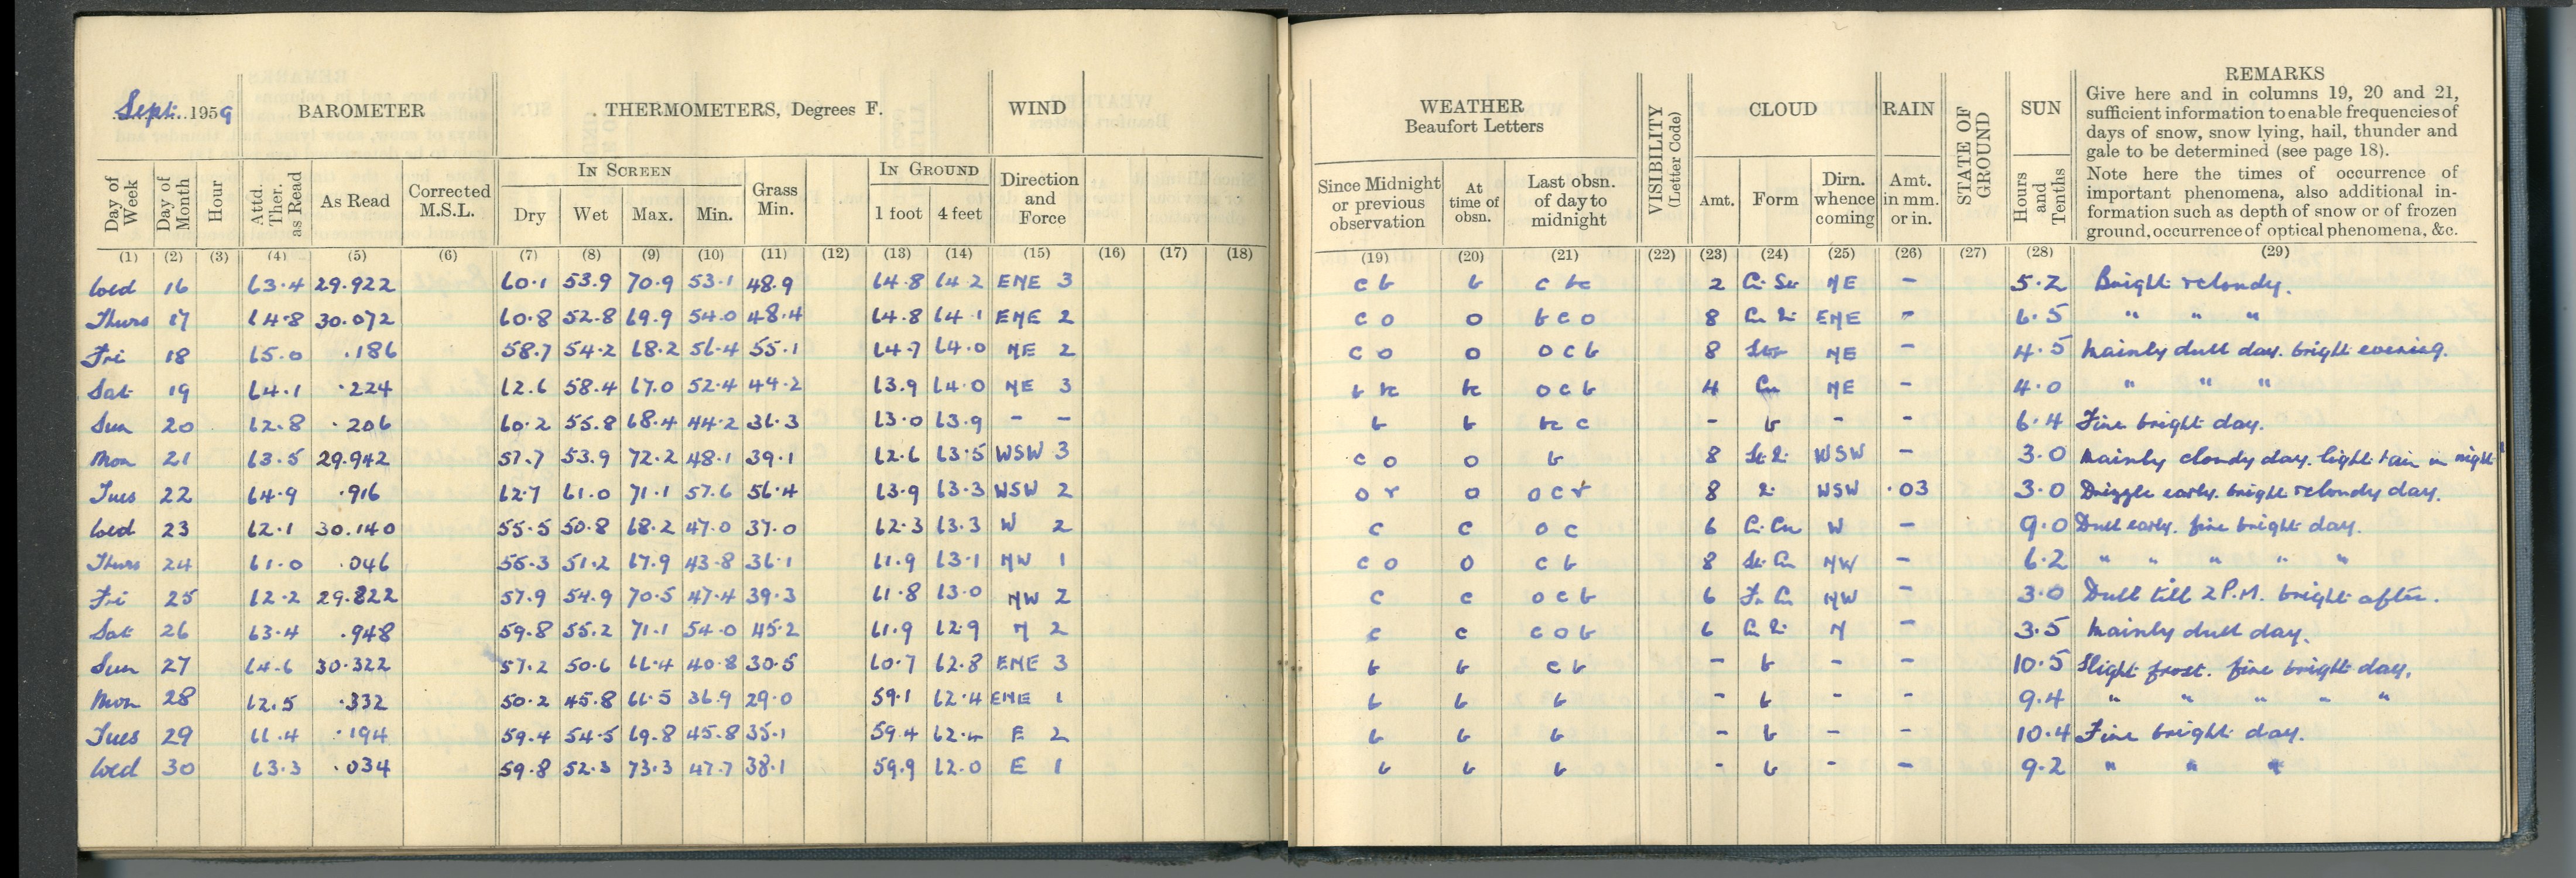 Sept. 1959 BAROMETER THERMOMETERS, Degrees F. WIND
IN SCREEN IN GROUND
Day of Week Day of Month Hour Attd. Ther. as Read As Read Corrected M.S.L. Dry Wet Max. Min. Grass Min. 1 foot 4 feet Direction and Force
(1) (2) (3) (4) (5) (6) (7) (8) (9) (10) (11) (12) (13) (14) (15) (16) (17) (18)
Wed 16 63.4 29.922 60.1 53.9 70.9 53.1 48.9 64.8 64.2 ENE 3
Thurs 17 64.8 30.072 60.8 52.8 69.9 54.0 48.4 64.8 64.1 ENE 2
Fri 18 65.0 .186 58.7 54.2 68.2 56.4 55.1 64.7 64.0 NE 2
Sat 19 64.1 .224 62.6 58.4 67.0 52.4 44.2 63.9 64.0 NE 3
Sun 20 62.8 .206 60.2 55.8 68.4 44.2 36.3 63.0 63.9 - -
Mon 21 63.5 29.942 57.7 53.9 72.2 48.1 39.1 62.6 63.5 WSW 3
Tues 22 64.9 .916 62.7 61.0 71.1 57.6 56.4 63.9 63.3 WSW 2
Wed 23 62.1 30.140 55.5 50.8 68.2 47.0 37.0 62.3 63.3 W 2
Thurs 24 61.0 .046 55.3 51.2 67.9 43.8 36.1 61.9 63.1 NW 1
Fri 25 62.2 29.822 57.9 54.9 70.5 47.4 39.3 61.8 63.0 NW 2
Sat 26 63.4 .948 59.8 55.2 71.1 54.0 45.2 61.9 62.9 N 2
Sun 27 64.6 30.322 57.2 50.6 66.4 40.8 30.5 60.7 62.8 ENE 3
Mon 28 62.5 .332 50.2 45.8 66.5 36.9 29.0 59.1 62.4 ENE 1
Tues 29 61.4 .194 59.4 54.5 69.8 45.8 35.1 59.4 62.4 E 2
Wed 30 63.3 .034 59.8 52.3 73.3 47.7 38.1 59.9 62.0 E 1
WEATHER Beaufort Letters VISIBILITY (Letter Code) CLOUD RAIN STATE OF GROUND SUN REMARKS
Give here and in columns 19, 20 and 21,
sufficient information to enable frequencies of
days of snow, snow lying, hail, thunder and
gale to be determined (see page 18).
Note here the times of occurrence of
important phenomena, also additional in-
formation such as depth of snow or of frozen
ground, occurrence of optical phenomena, &c.
Since Midnight or previous observation At time of obsn. Last obsn. of day to midnight Amt. Form Dirn. whence coming Amt. in mm. or in. Hours and Tenths
(19) (20) (21) (22) (23) (24) (25) (26) (27) (28) (29)
c b b c bc 2 NE - 5.2 Bright & cloudy.
c o o b c o 8 ENE - 6.5 " " "
c o o o c b 8 NE - 4.5 Mainly dull day. bright evening.
b bc bc o c b 4 Cu NE - 4.0 " " "
b b bc c - b - - 6.4 Fine bright day.
c o o b 8 WSW - 3.0 Mainly cloudy day. light rain in night
o r o o c r 8 WSW .03 3.0 Drizzle early. bright & cloudy day.
c c o c 6 W - 9.0 Dull early. fine bright day.
c o o c b 8 St. Cu NW - 6.2 " " " " "
c c o c b 6 Fr. Cu NW - 3.0 Dull till 2 P.M. bright after.
c c c o b 6 N - 3.5 Mainly dull day.
b b c b - b - - 10.5 Slight frost. fine bright day.
b b b - b - - 9.4 " " " " "
b b b - b - - 10.4 Fine bright day.
b b b - b - - 9.2 " " "